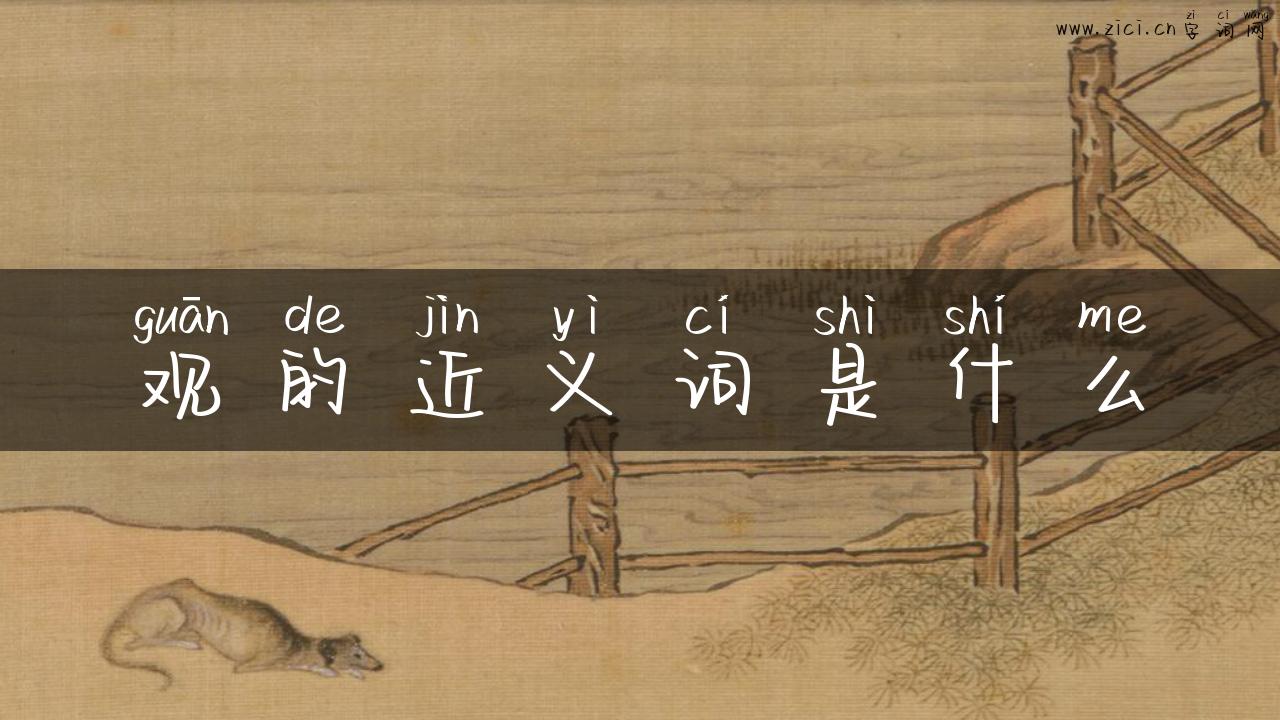 zì cí wǎng
www.zici.cn 字词网
guān de jìn yì cí shì shí me
观的近义词是什么